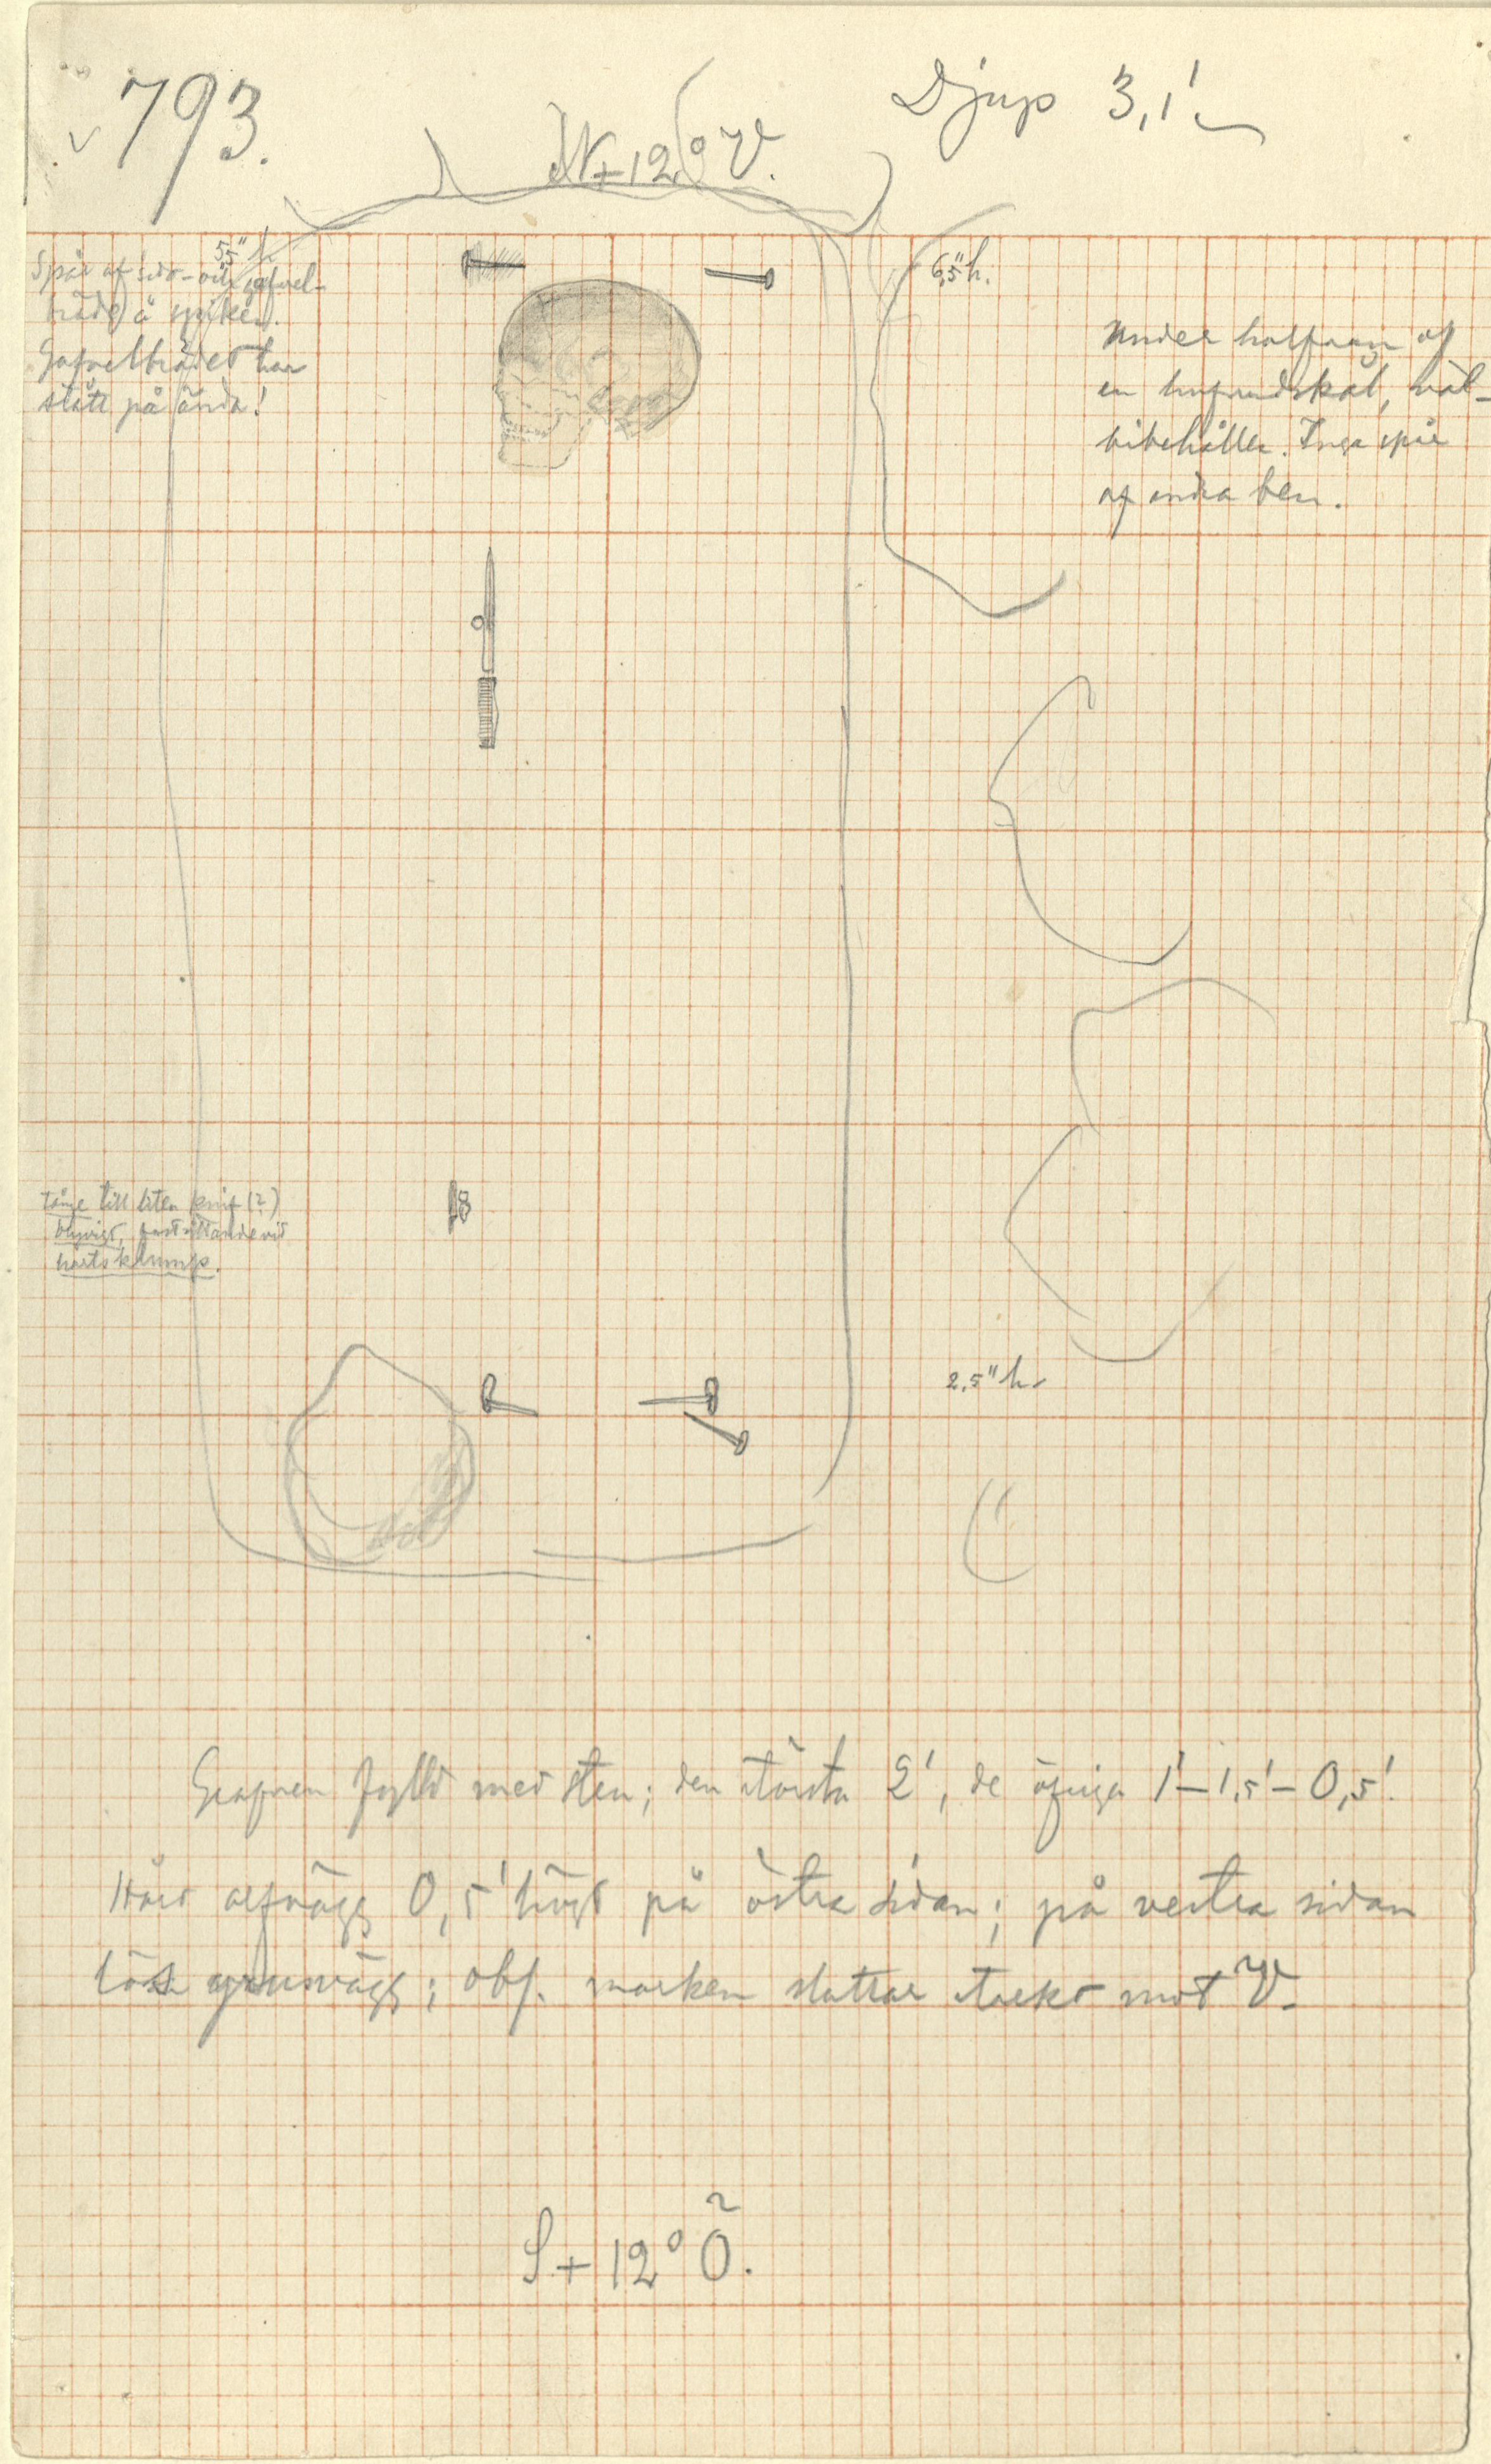 793.
Djup 3,1'
N+12° V.
5,5" h.
Spår af sido- och gafvel-
bräde å spiken.
Gafvelbrädet har
stått på ända!
6,5" h.
Under halfvan af
en hufvudskål, väl-
bibehållen. Inga spår
af andra ben.
Tånge till liten knif (?)
fastsittande vid
hartsklump.
2,5" h.
Grafven fylld med sten; den största 2', de öfriga 1'–1,5'–0,5'.
Hård alfvägg 0,5' högt på östra sidan; på vestra sidan
lösa grusvägg; obs. marken sluttar starkt mot V.
S+12° Ö.